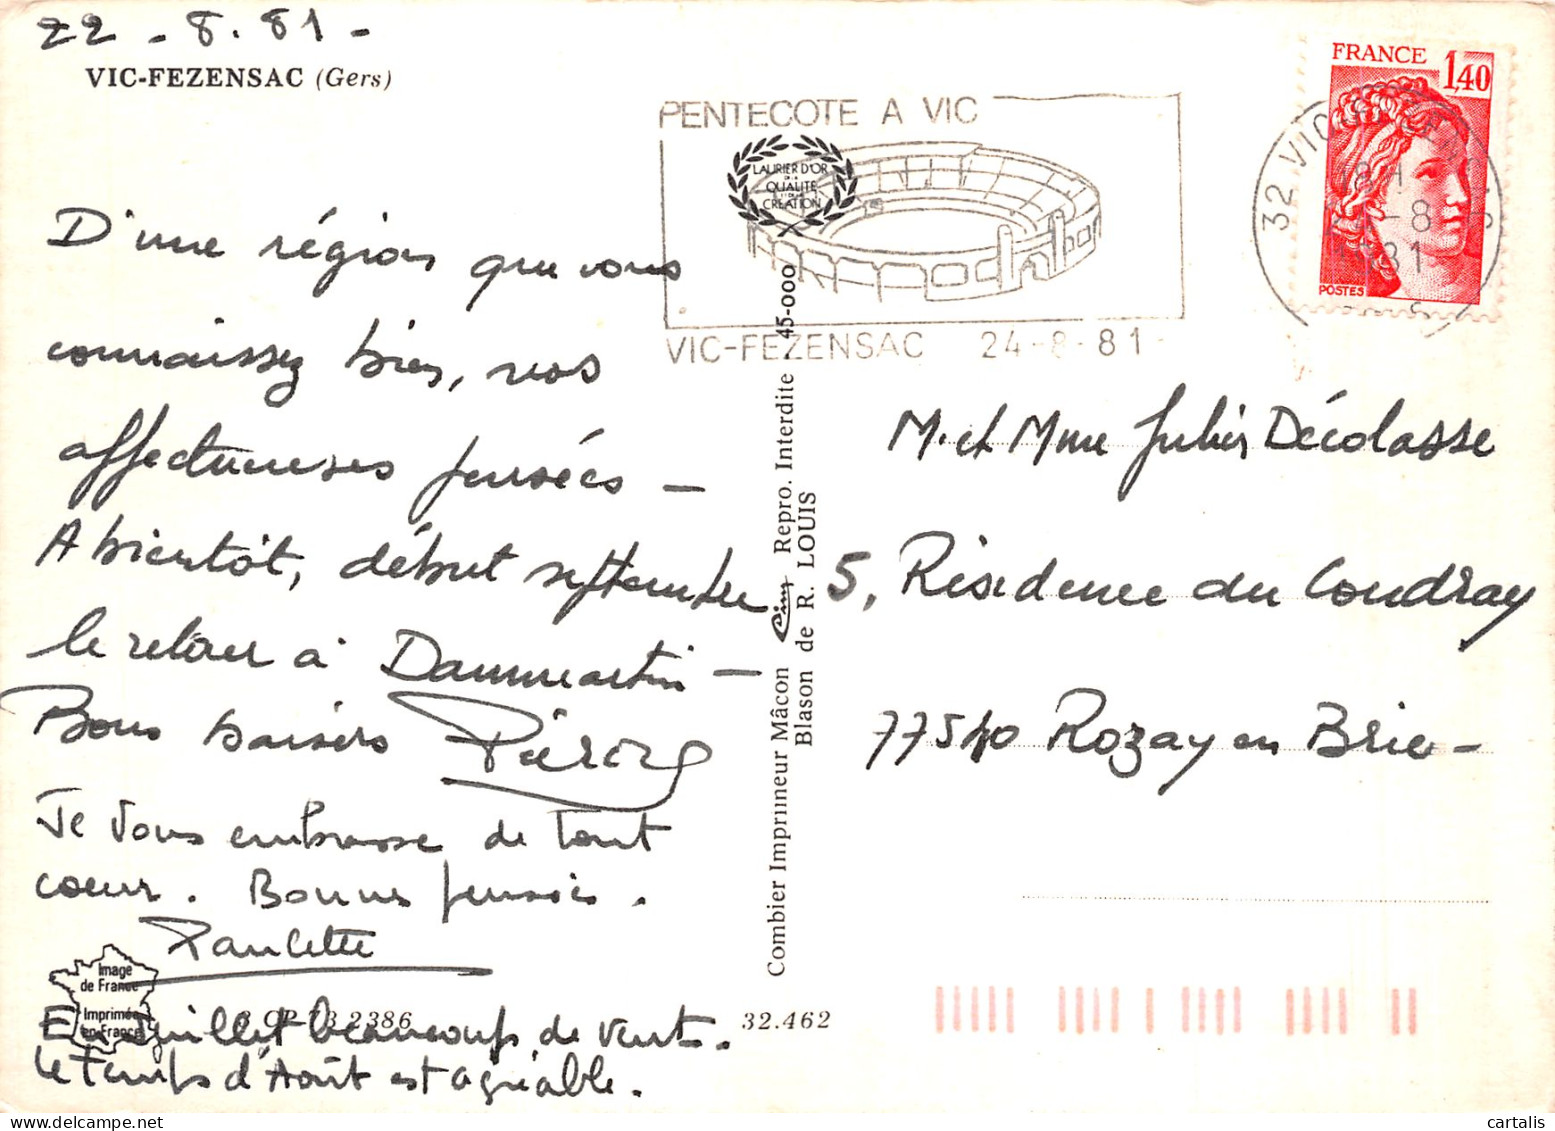 22 - 8.81 -
VIC-FEZENSAC (Gers)
D'une région que vous
connaissez bien, nos
affectueuses pensées -
A bientôt, début septembre
le retour à Dammartin -
Bons baisers Pierre
Je vous embrasse de tout
coeur. Bonnes pensées.
Paulette
En Juillet beaucoup de vent.
Le temps d'Août est agréable.
Image
de France
Imprimée
en France
2386
32.462
Combier Imprimeur Mâcon Cim Repro. Interdite 45-000
Blason de R. LOUIS
PENTECOTE A VIC
LAURIER D'OR
DE LA
QUALITE
CREATION
VIC-FEZENSAC 24-8-81
FRANCE 1,40
POSTES
32 VIC
18H
-8
M. et Mme Julien Décolasse
5, Résidence du Coudray
77540 Rozay en Brie -
cartalis